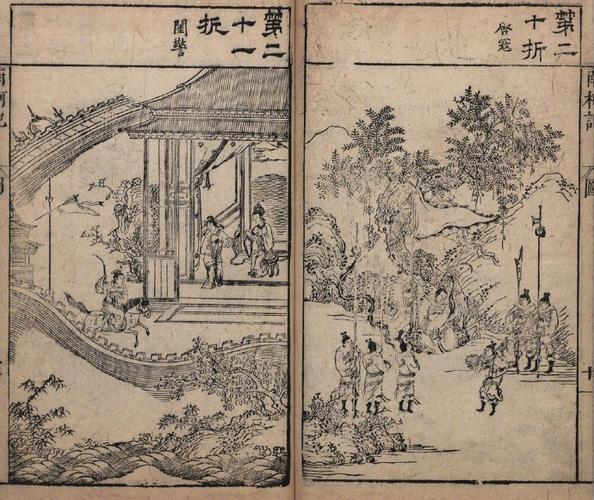 第二
十折
啓寇
南柯記
圖
第二
十一
折
閨警
南柯記
圖